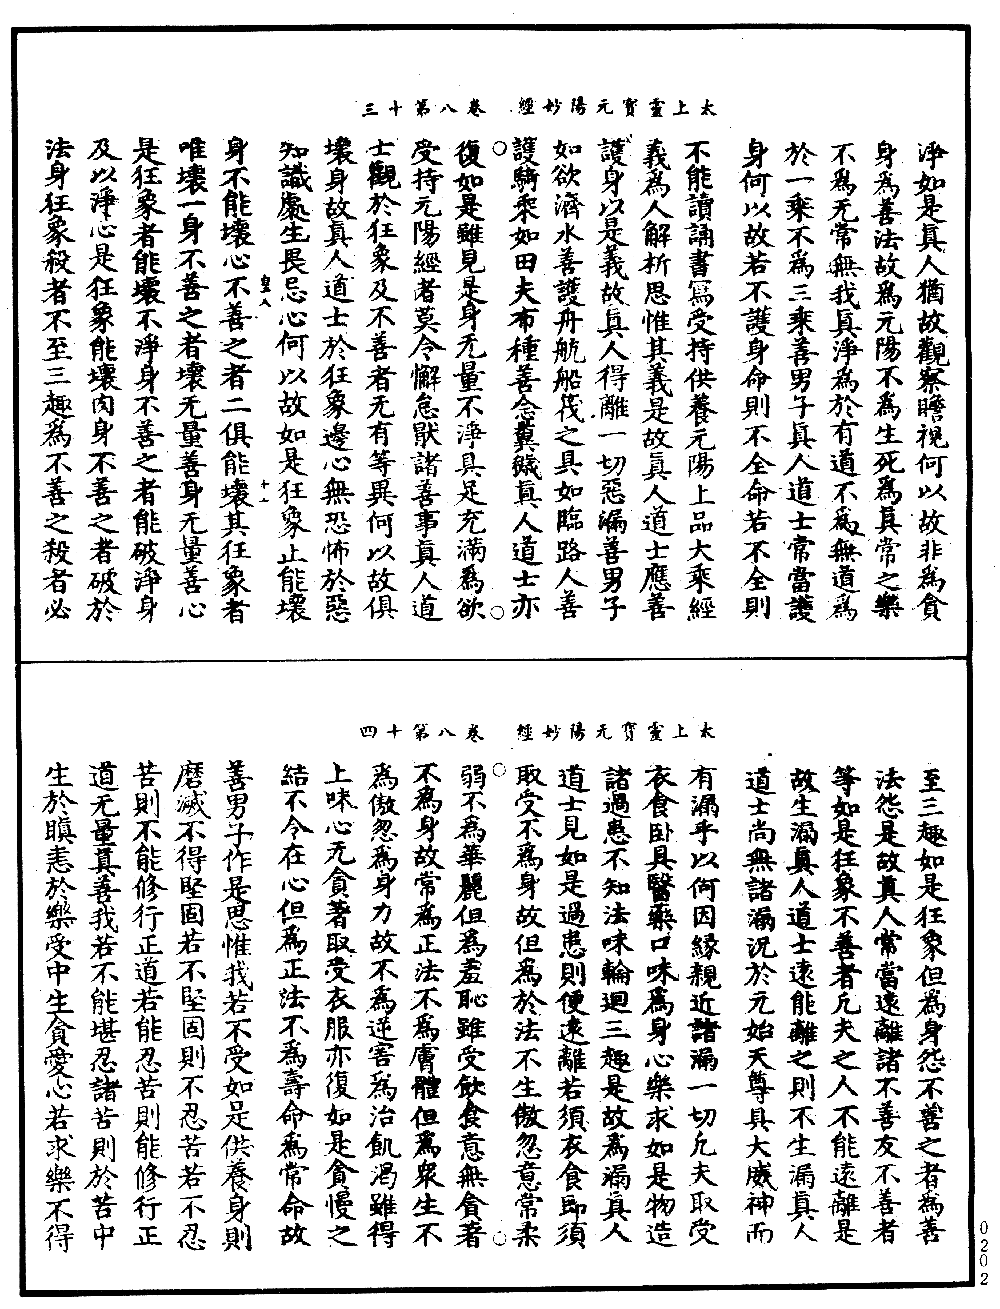 太上靈寶元陽妙經　卷八第十三
淨如是真人猶故觀察瞻視何以故非為貪
身為善法故為元陽不為生死為真常之樂
不為无常無我真淨為於有道不為無道為
於一乘不為三乘善男子真人道士常當護
身何以故若不護身命則不全命若不全則
不能讀誦書寫受持供養元陽上品大乘經
義為人解析思惟其義是故真人道士應善
護身以是義故真人得離一切惡漏善男子
如欲濟水善護舟航船筏之具如臨路人善
護騎乘如田夫布種善念糞穢真人道士亦
復如是雖見是身无量不淨具足充滿為欲
受持元陽經者莫令懈怠厭諸善事真人道
士觀於狂象及不善者无有等異何以故俱
壞身故真人道士於狂象邊心無恐怖於惡
知識處生畏忌心何以故如是狂象止能壞
皇八　十一
身不能壞心不善之者二俱能壞其狂象者
唯壞一身不善之者壞无量善身无量善心
是狂象者能壞不淨身不善之者能破淨身
及以淨心是狂象能壞肉身不善之者破於
法身狂象殺者不至三趣為不善之殺者必
太上靈寶元陽妙經　卷八第十四
至三趣如是狂象但為身怨不善之者為善
法怨是故真人常當遠離諸不善友不善者
等如是狂象不善者凡夫之人不能遠離是
故生漏真人道士遠能離之則不生漏真人
道士尚無諸漏況於元始天尊具大威神而
有漏乎以何因緣親近諸漏一切凡夫取受
衣食卧具醫藥口味為身心樂求如是物造
諸過患不知法味輪迴三趣是故為漏真人
道士見如是過患則便遠離若須衣食即須
取受不為身故但為於法不生傲忽意常柔
弱不為華麗但為羞恥雖受飲食意無貪著
不為身故常為正法不為膚體但為眾生不
為傲忽為身力故不為逆害為治飢渴雖得
上味心无貪著取受衣服亦復如是貪慢之
結不令在心但為正法不為壽命為常命故
善男子作是思惟我若不受如是供養身則
磨滅不得堅固若不堅固則不忍苦若不忍
苦則不能修行正道若能忍苦則能修行正
道无量真善我若不能堪忍諸苦則於苦中
生於瞋恚於樂受中生貪愛心若求樂不得
0202